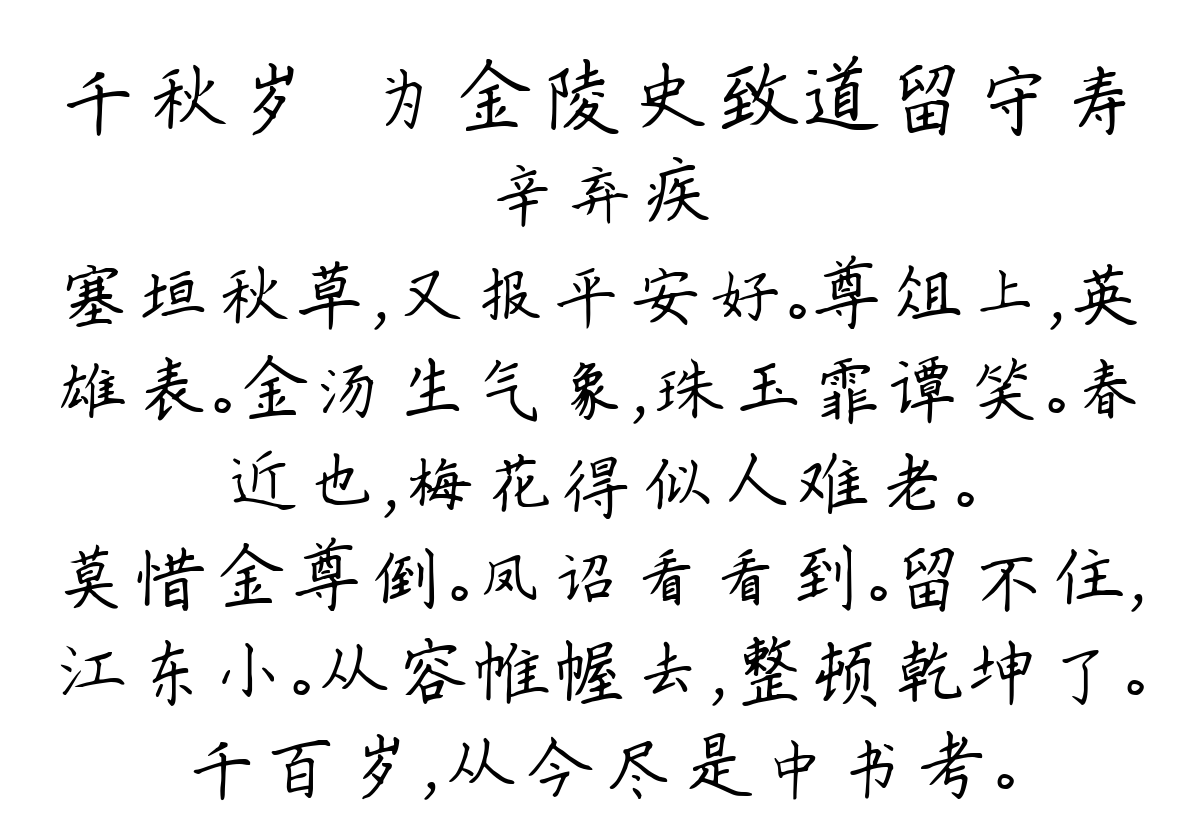 千秋岁 为金陵史致道留守寿
辛弃疾
塞垣秋草,又报平安好。尊俎上,英
雄表。金汤生气象,珠玉霏谭笑。春
近也,梅花得似人难老。
莫惜金尊倒。凤诏看看到。留不住,
江东小。从容帷幄去,整顿乾坤了。
千百岁,从今尽是中书考。